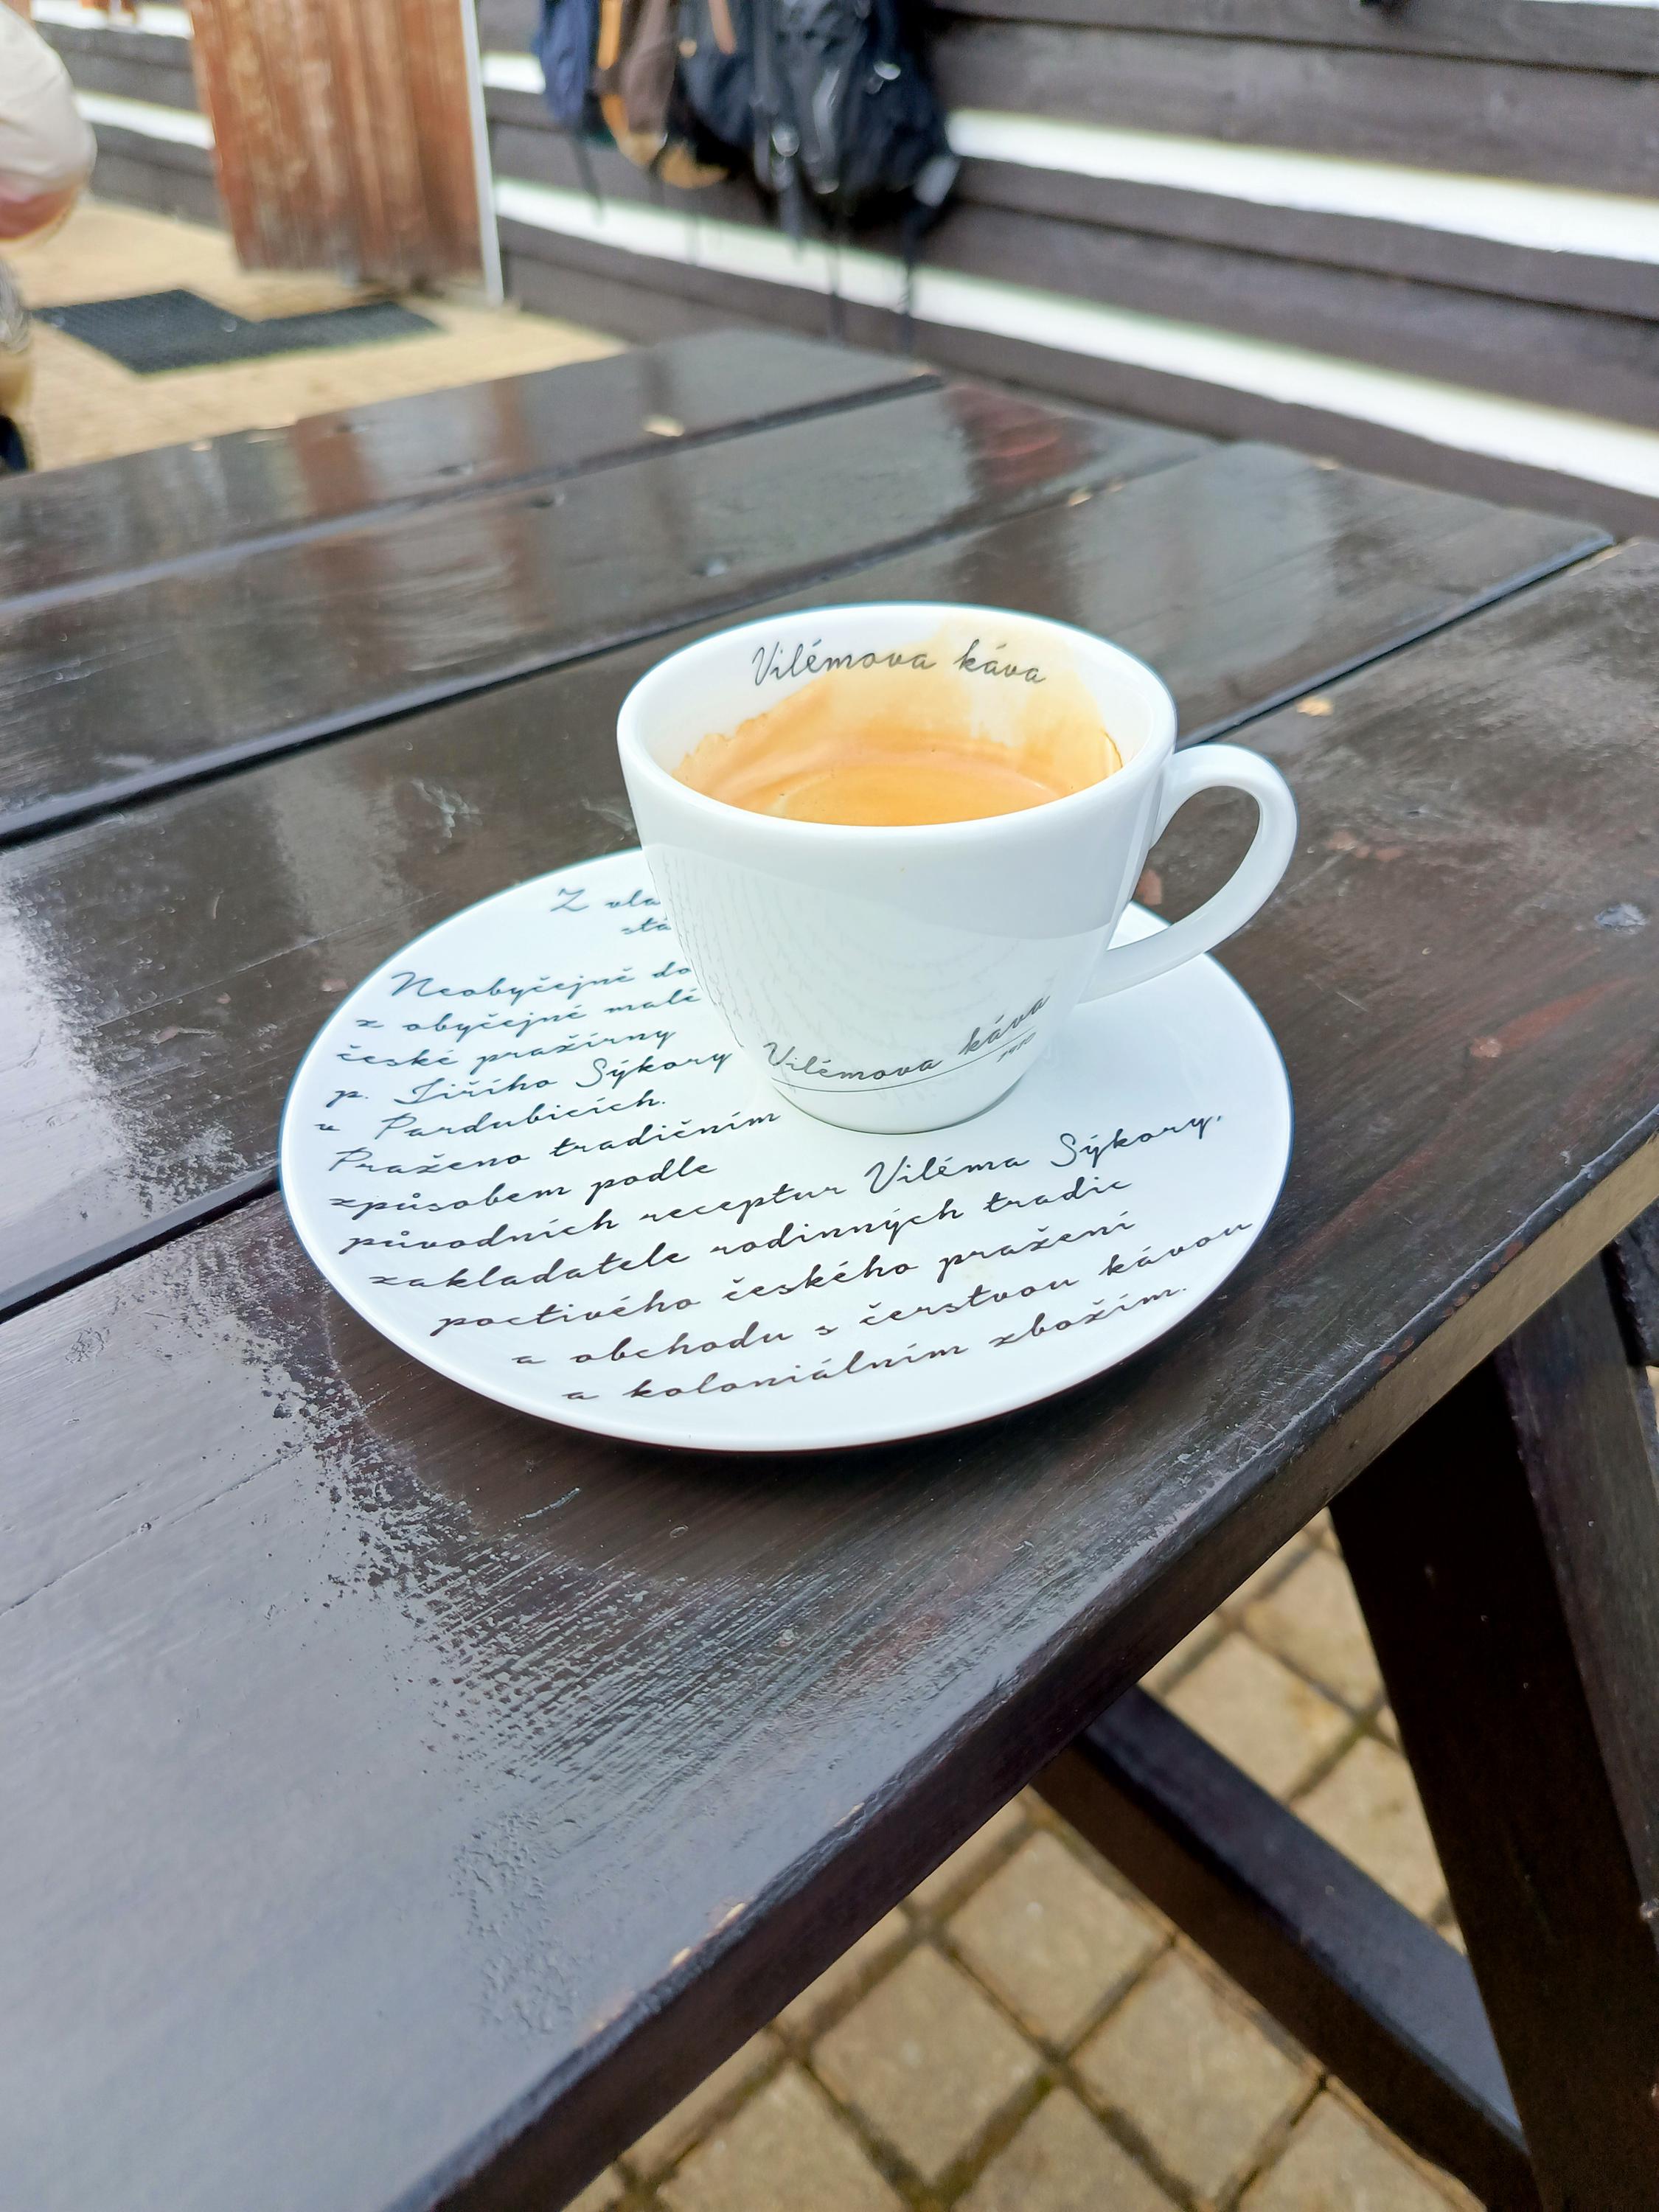 Vilémova káva
Z
Neobyčejně
z obyčejné malé
české pražírny
p. Jiřího Sýkory
v Pardubicích.
Praženo tradičním
způsobem podle
původních receptur Viléma Sýkory,
zakladatele rodinných tradic
poctivého českého pražení
a obchodu s čerstvou kávou
a koloniálním zbožím.
Vilémova káva